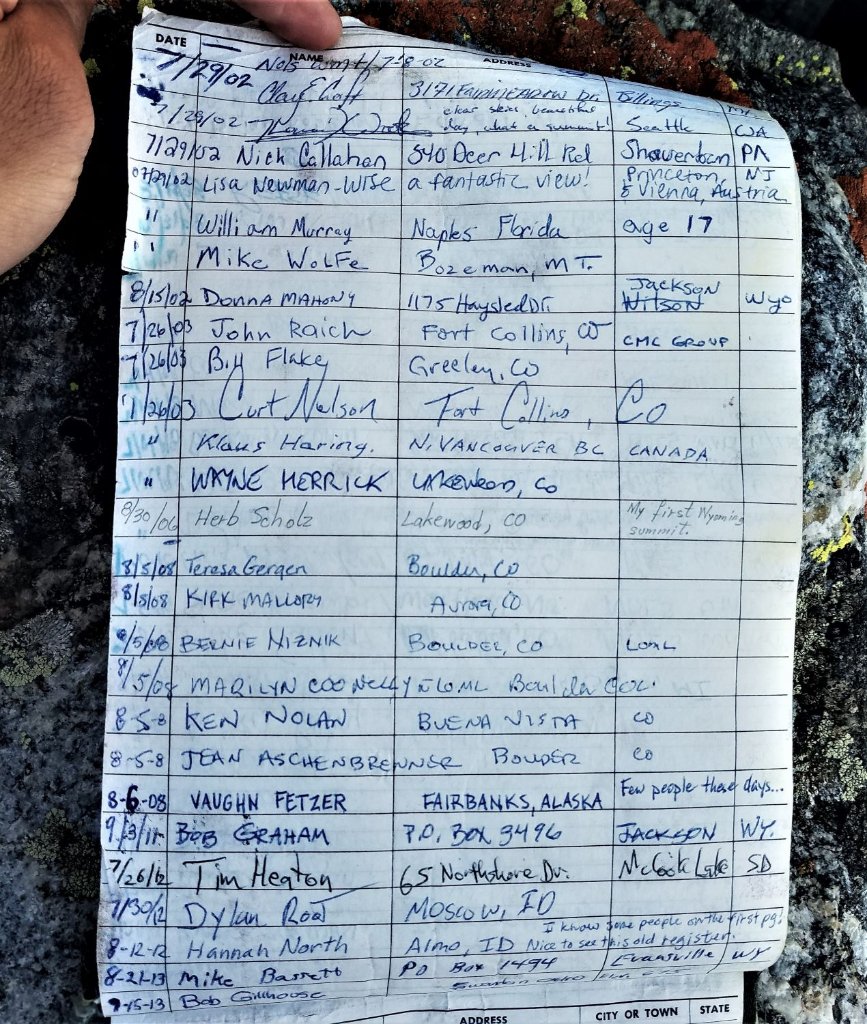 DATE NAME ADDRESS
7/29/02 Nols 7-8-02
Clay 3171 Dr. Billings
7/29/02 clear skies beautiful day, what a summit! Seattle WA
7/29/02 Nick Callahan 540 Deer Hill Rd PA
07/29/02 Lisa Newman-Wise a fantastic view! Princeton, NJ & Vienna, Austria
" William Murray Naples Florida age 17
" Mike Wolfe Bozeman, MT.
8/15/02 Donna Mahony 1175 Dr. Jackson Wilson Wyo
7/26/03 John Raich Fort Collins, CO CMC GROUP
7/26/03 Bill Flakey Greeley, CO
7/26/03 Curt Nelson Fort Collins, Co
" Klaus Haring. N. VANCOUVER BC CANADA
" WAYNE HERRICK LAKEWOOD, CO
8/30/06 Herb Scholz Lakewood, CO My first Wyoming summit.
8/5/08 Teresa Gergen Boulder, CO
8/5/08 KIRK MALLORY Aurora, CO
8/5/08 BERNIE NIZNIK BOULDER, CO LOML
8/5/08 MARILYN COONELLY LOML Boulder COL.
8-5-8 KEN NOLAN BUENA VISTA CO
8-5-8 JEAN ASCHENBRENNER BOULDER CO
8-6-08 VAUGHN FETZER FAIRBANKS, ALASKA Few people these days...
9/3/11 BOB GRAHAM P.O. BOX 3496 JACKSON WY.
7/26/12 Tim Heaton 65 Northshore Dr. McCook Lake SD
7/30/12 Dylan Root Moscow, ID
8-12-12 Hannah North Almo, ID I know some people on the first pg! Nice to see this old register.
8-21-13 Mike Bassett PO Box 1494 Evansville WY
9-15-13 Bob
ADDRESS CITY OR TOWN STATE